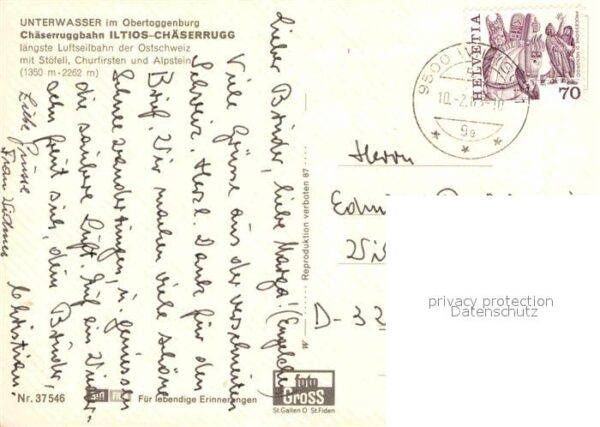 UNTERWASSER im Obertoggenburg
Chäserruggbahn ILTIOS-CHÄSERRUGG
längste Luftseilbahn der Ostschweiz
mit Stöfeli, Churfirsten und Alpstein
(1350 m - 2262 m)
Lieber Bruder, liebe Marga!
Viele Grüsse aus der verschneiten
Schweiz. Herzl. Dank für den
Brief. Wir machen viele schöne
Schneewanderungen, u. geniessen
die saubere Luft. Auf ein Wieder-
sehn freut sich, dein Bruder,
Christian.
Liebe Grüsse
Frau
HELVETIA
PROCESSIONE DI MENDRISIO
70
9500
10.-2.
9a
Herrn
D-
Reproduktion verboten 87
W
privacy protection
Datenschutz
Nr. 37546
Für lebendige Erinnerungen
foto
Gross
St.Gallen O St.Fiden